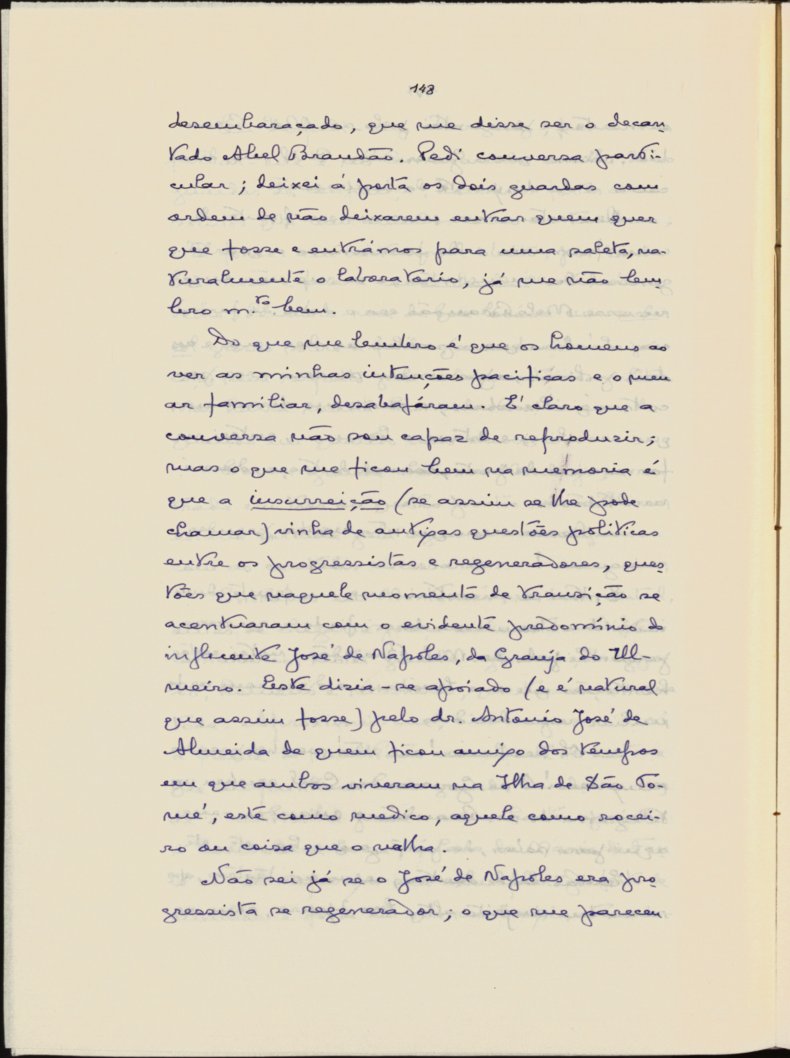 148
desembaraçado, que me disse ser o decan-
tado Abel Brandão. Pedi conversa parti-
cular; deixei á porta os dois guardas com
ordem de não deixarem entrar quem quer
que fosse e entrámos para uma saleta, na-
turalmente o laboratorio, já me não lem-
bro m.to bem.
Do que me lembro é que os homens ao
ver as minhas intenções pacificas e o meu
ar familiar, desabafáram. E' claro que a
conversa não sou capaz de reproduzir;
mas o que me ficou bem na memoria é
que a insurreição (se assim se lhe pode
chamar) vinha de antigas questões politicas
entre os progressistas e regeneradores, ques-
tões que naquele momento de transição se
acentuaram com o evidente predomínio do
influente José de Napoles, da Granja do Ul-
meiro. Este dizia-se apoiado (e é natural
que assim fosse) pelo dr. Antonio José de
Almeida de quem ficou amigo dos tempos
em que ambos viveram na Ilha de São To-
mé, este como medico, aquele como rocei-
ro ou coisa que o valha.
Não sei já se o José de Napoles era pro-
gressista se regenerador; o que me pareceu